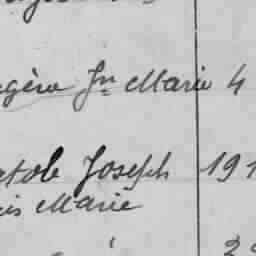 gène Jn Marie 4
atole Joseph 191
is Marie